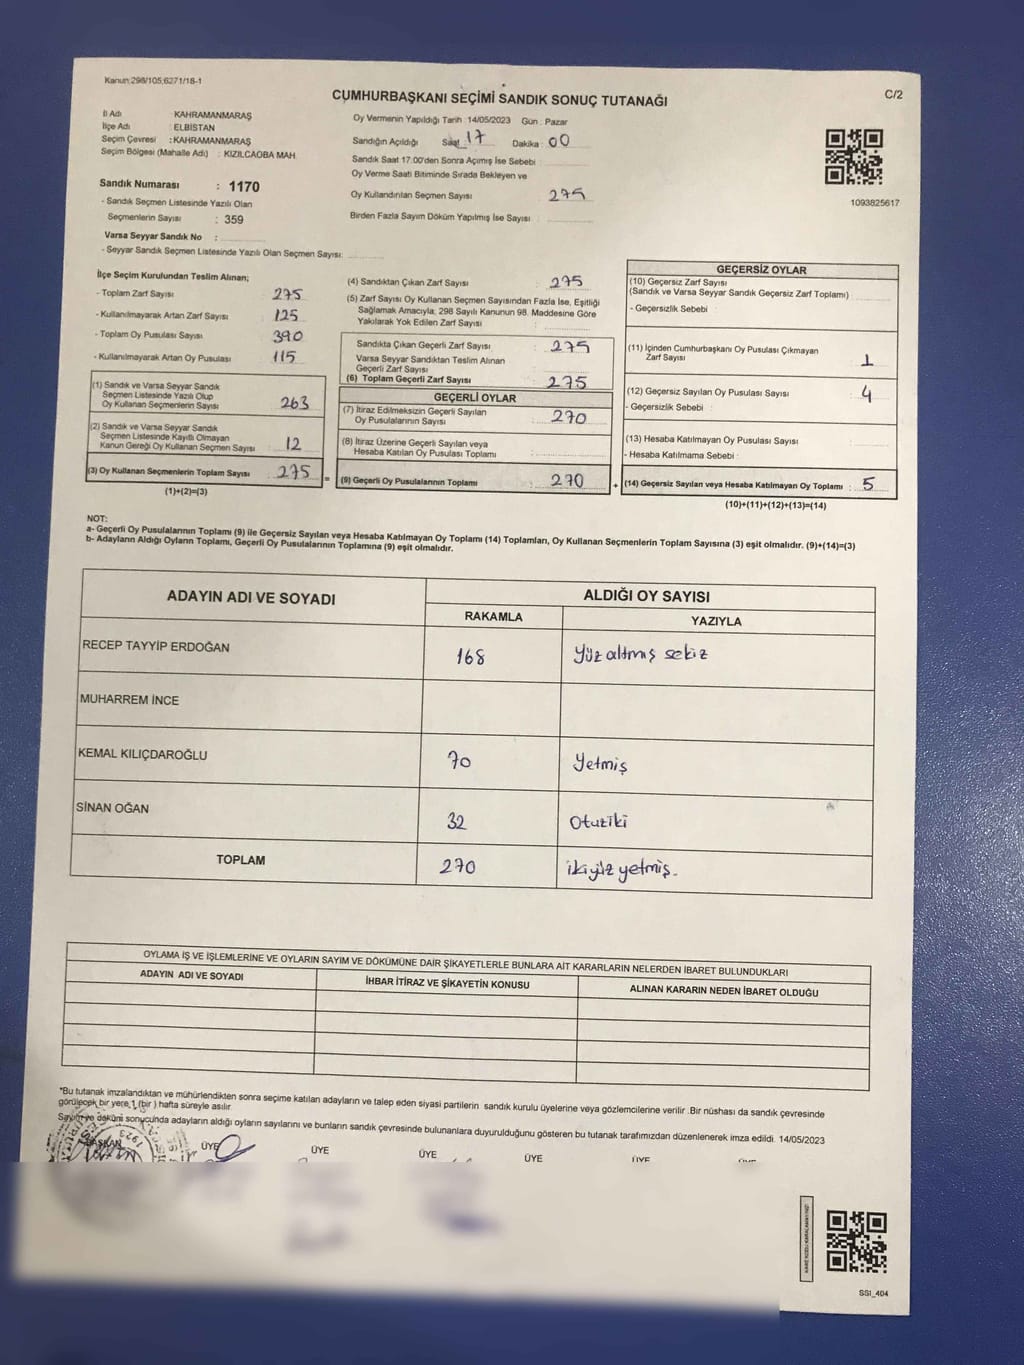 Kanun:298/105;6271/18-1
CUMHURBAŞKANI SEÇİMİ SANDIK SONUÇ TUTANAĞI
C/2
İl Adı : KAHRAMANMARAŞ
İlçe Adı : ELBİSTAN
Seçim Çevresi : KAHRAMANMARAŞ
Seçim Bölgesi (Mahalle Adı) : KIZILCAOBA MAH.
Sandık Numarası : 1170
- Sandık Seçmen Listesinde Yazılı Olan
Seçmenlerin Sayısı : 359
Varsa Seyyar Sandık No :
- Seyyar Sandık Seçmen Listesinde Yazılı Olan Seçmen Sayısı:
Oy Vermenin Yapıldığı Tarih :14/05/2023 Gün : Pazar
Sandığın Açıldığı Saat 17 Dakika : 00
Sandık Saat 17:00'den Sonra Açımış İse Sebebi :
Oy Verme Saati Bitiminde Sırada Bekleyen ve
Oy Kullandırılan Seçmen Sayısı : 275
Birden Fazla Sayım Döküm Yapılmış İse Sayısı :
1093825617
İlçe Seçim Kurulundan Teslim Alınan;
- Toplam Zarf Sayısı : 275
- Kullanılmayarak Artan Zarf Sayısı : 125
- Toplam Oy Pusulası Sayısı : 390
- Kullanılmayarak Artan Oy Pusulası : 115
(1) Sandık ve Varsa Seyyar Sandık
Seçmen Listesinde Yazılı Olup
Oy Kullanan Seçmenlerin Sayısı : 263
(2) Sandık ve Varsa Seyyar Sandık
Seçmen Listesinde Kayıtlı Olmayan
Kanun Gereği Oy Kullanan Seçmen Sayısı : 12
(3) Oy Kullanan Seçmenlerin Toplam Sayısı : 275
(1)+(2)=(3)
=
(4) Sandıktan Çıkan Zarf Sayısı : 275
(5) Zarf Sayısı Oy Kullanan Seçmen Sayısından Fazla İse, Eşitliği
Sağlamak Amacıyla, 298 Sayılı Kanunun 98. Maddesine Göre
Yakılarak Yok Edilen Zarf Sayısı :
Sandıkta Çıkan Geçerli Zarf Sayısı : 275
Varsa Seyyar Sandıktan Teslim Alınan
Geçerli Zarf Sayısı :
(6) Toplam Geçerli Zarf Sayısı : 275
GEÇERLİ OYLAR
(7) İtiraz Edilmeksizin Geçerli Sayılan
Oy Pusulalarının Sayısı : 270
(8) İtiraz Üzerine Geçerli Sayılan veya
Hesaba Katılan Oy Pusulası Toplamı :
(9) Geçerli Oy Pusulalarının Toplamı : 270
+
GEÇERSİZ OYLAR
(10) Geçersiz Zarf Sayısı
(Sandık ve Varsa Seyyar Sandık Geçersiz Zarf Toplamı) :
- Geçersizlik Sebebi :
(11) İçinden Cumhurbaşkanı Oy Pusulası Çıkmayan
Zarf Sayısı : 1
(12) Geçersiz Sayılan Oy Pusulası Sayısı : 4
- Geçersizlik Sebebi :
(13) Hesaba Katılmayan Oy Pusulası Sayısı :
- Hesaba Katılmama Sebebi :
(14) Geçersiz Sayılan veya Hesaba Katılmayan Oy Toplamı : 5
(10)+(11)+(12)+(13)=(14)
NOT:
a- Geçerli Oy Pusulalarının Toplamı (9) ile Geçersiz Sayılan veya Hesaba Katılmayan Oy Toplamı (14) Toplamları, Oy Kullanan Seçmenlerin Toplam Sayısına (3) eşit olmalıdır. (9)+(14)=(3)
b- Adayların Aldığı Oyların Toplamı, Geçerli Oy Pusulalarının Toplamına (9) eşit olmalıdır.
ADAYIN ADI VE SOYADI
ALDIĞI OY SAYISI
RAKAMLA YAZIYLA
RECEP TAYYİP ERDOĞAN 168 Yüz altmış sekiz
MUHARREM İNCE
KEMAL KILIÇDAROĞLU 70 Yetmiş
SİNAN OĞAN 32 Otuziki
TOPLAM 270 ikiyüz yetmiş.
OYLAMA İŞ VE İŞLEMLERİNE VE OYLARIN SAYIM VE DÖKÜMÜNE DAİR ŞİKAYETLERLE BUNLARA AİT KARARLARIN NELERDEN İBARET BULUNDUKLARI
ADAYIN ADI VE SOYADI İHBAR İTİRAZ VE ŞİKAYETİN KONUSU ALINAN KARARIN NEDEN İBARET OLDUĞU
*Bu tutanak imzalandıktan ve mühürlendikten sonra seçime katılan adayların ve talep eden siyasi partilerin sandık kurulu üyelerine veya gözlemcilerine verilir .Bir nüshası da sandık çevresinde
görülecek bir yere 1 (bir ) hafta süreyle asılır.
Sayım ve dökümü sonucunda adayların aldığı oyların sayılarını ve bunların sandık çevresinde bulunanlara duyurulduğunu gösteren bu tutanak tarafımızdan düzenlenerek imza edildi. 14/05/2023
BAŞKAN ÜYE ÜYE ÜYE ÜYE ÜYE
1923
SSI_404